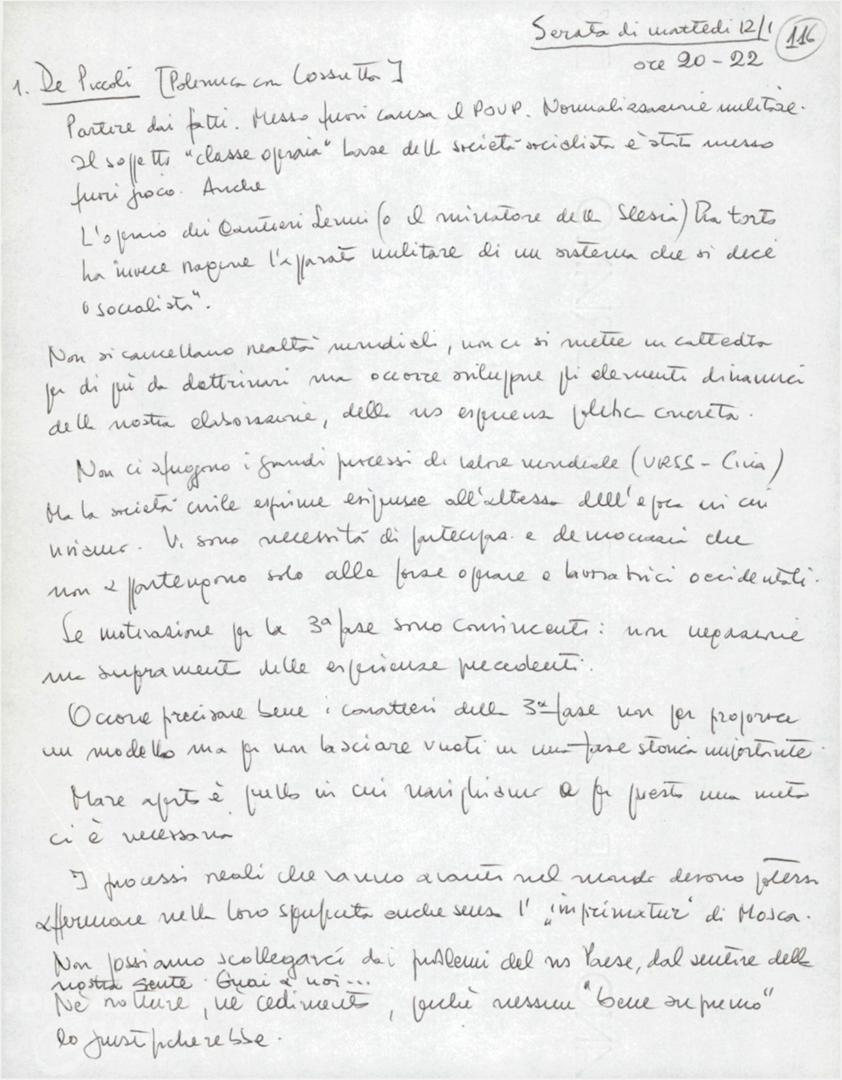 Serata di martedì 12/1
116
ore 20-22
1. De Piccoli [Polemica con Cossutta]
Partire dai fatti. Messo fuori causa il POUP. Normalizzazione militare.
Il soggetto "classe operaia" base della società socialista è stato messo
fuori gioco. Anche
L'operaio dei Cantieri Lenin (o il minatore della Slesia) ha torto
ha invece ragione l'apparato militare di un sistema che si dice
"socialista".
Non si cancellano realtà mondiali, non ci si mette in cattedra
per di più da dottrinari ma occorre sviluppare gli elementi dinamici
della nostra elaborazione, della ns esperienza politica concreta.
Non ci sfuggono i grandi processi di valore mondiale (URSS - Cina)
Ma la società civile esprime esigenze all'altezza dell'epoca in cui
viviamo. Vi sono necessità di partecipaz. e democrazia che
non appartengono solo alle forze operaie e lavoratrici occidentali.
Le motivazione per la 3ª fase sono convincenti: non negazione
ma superamento delle esperienze precedenti.
Occorre precisare bene i caratteri della 3ª fase non per proporre
un modello ma per non lasciare vuoti in una fase storica importante.
Mare aperto è quello in cui navighiamo e per questo una meta
ci è necessaria
I processi reali che vanno avanti nel mondo devono potersi
affermare nella loro compiutezza anche senza l' "imprimatur" di Mosca.
Non possiamo scollegarci dai problemi del ns Paese, dal sentire della
nostra gente. Guai a noi...
Nè rotture, nè cedimenti, perchè nessun "bene supremo"
lo giustificherebbe.